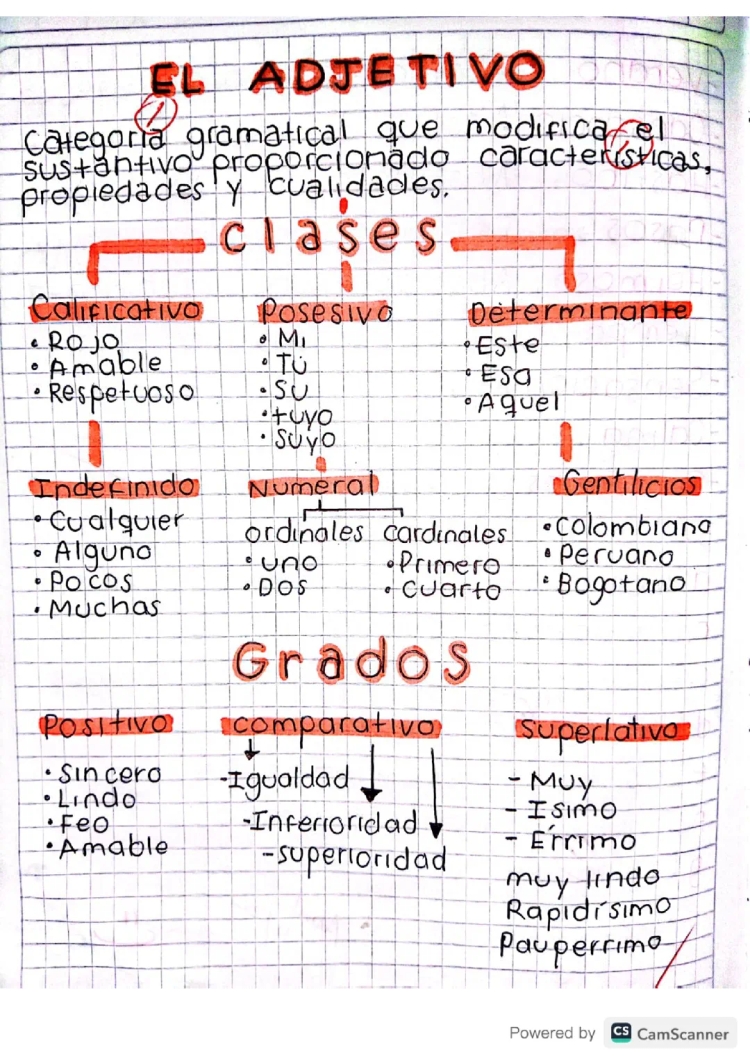 EL ADJETIVO
Categoría gramatical que modifica el
sustantivo proporcionado características,
propiedades y cualidades.
Clases
Calificativo
• Rojo
• Amable
• Respetuoso
Posesivo
• Mi
• Tú
• Su
• tuyo
• Suyo
Determinante
• Este
• Esa
• Aquel
Indefinido
• Cualquier
• Alguno
• Pocos
• Muchas
Numeral
ordinales
• uno
• Dos
cardinales
• Primero
• Cuarto
Gentilicios
• Colombiano
• Peruano
• Bogotano
Grados
Positivo
• Sincero
• Lindo
• Feo
• Amable
comparativo
-Igualdad
-Inferioridad
-superioridad
Superlativo
- Muy
- Isimo
- Érrimo
muy lindo
Rapidísimo
Pauperrimo
Powered by CS CamScanner